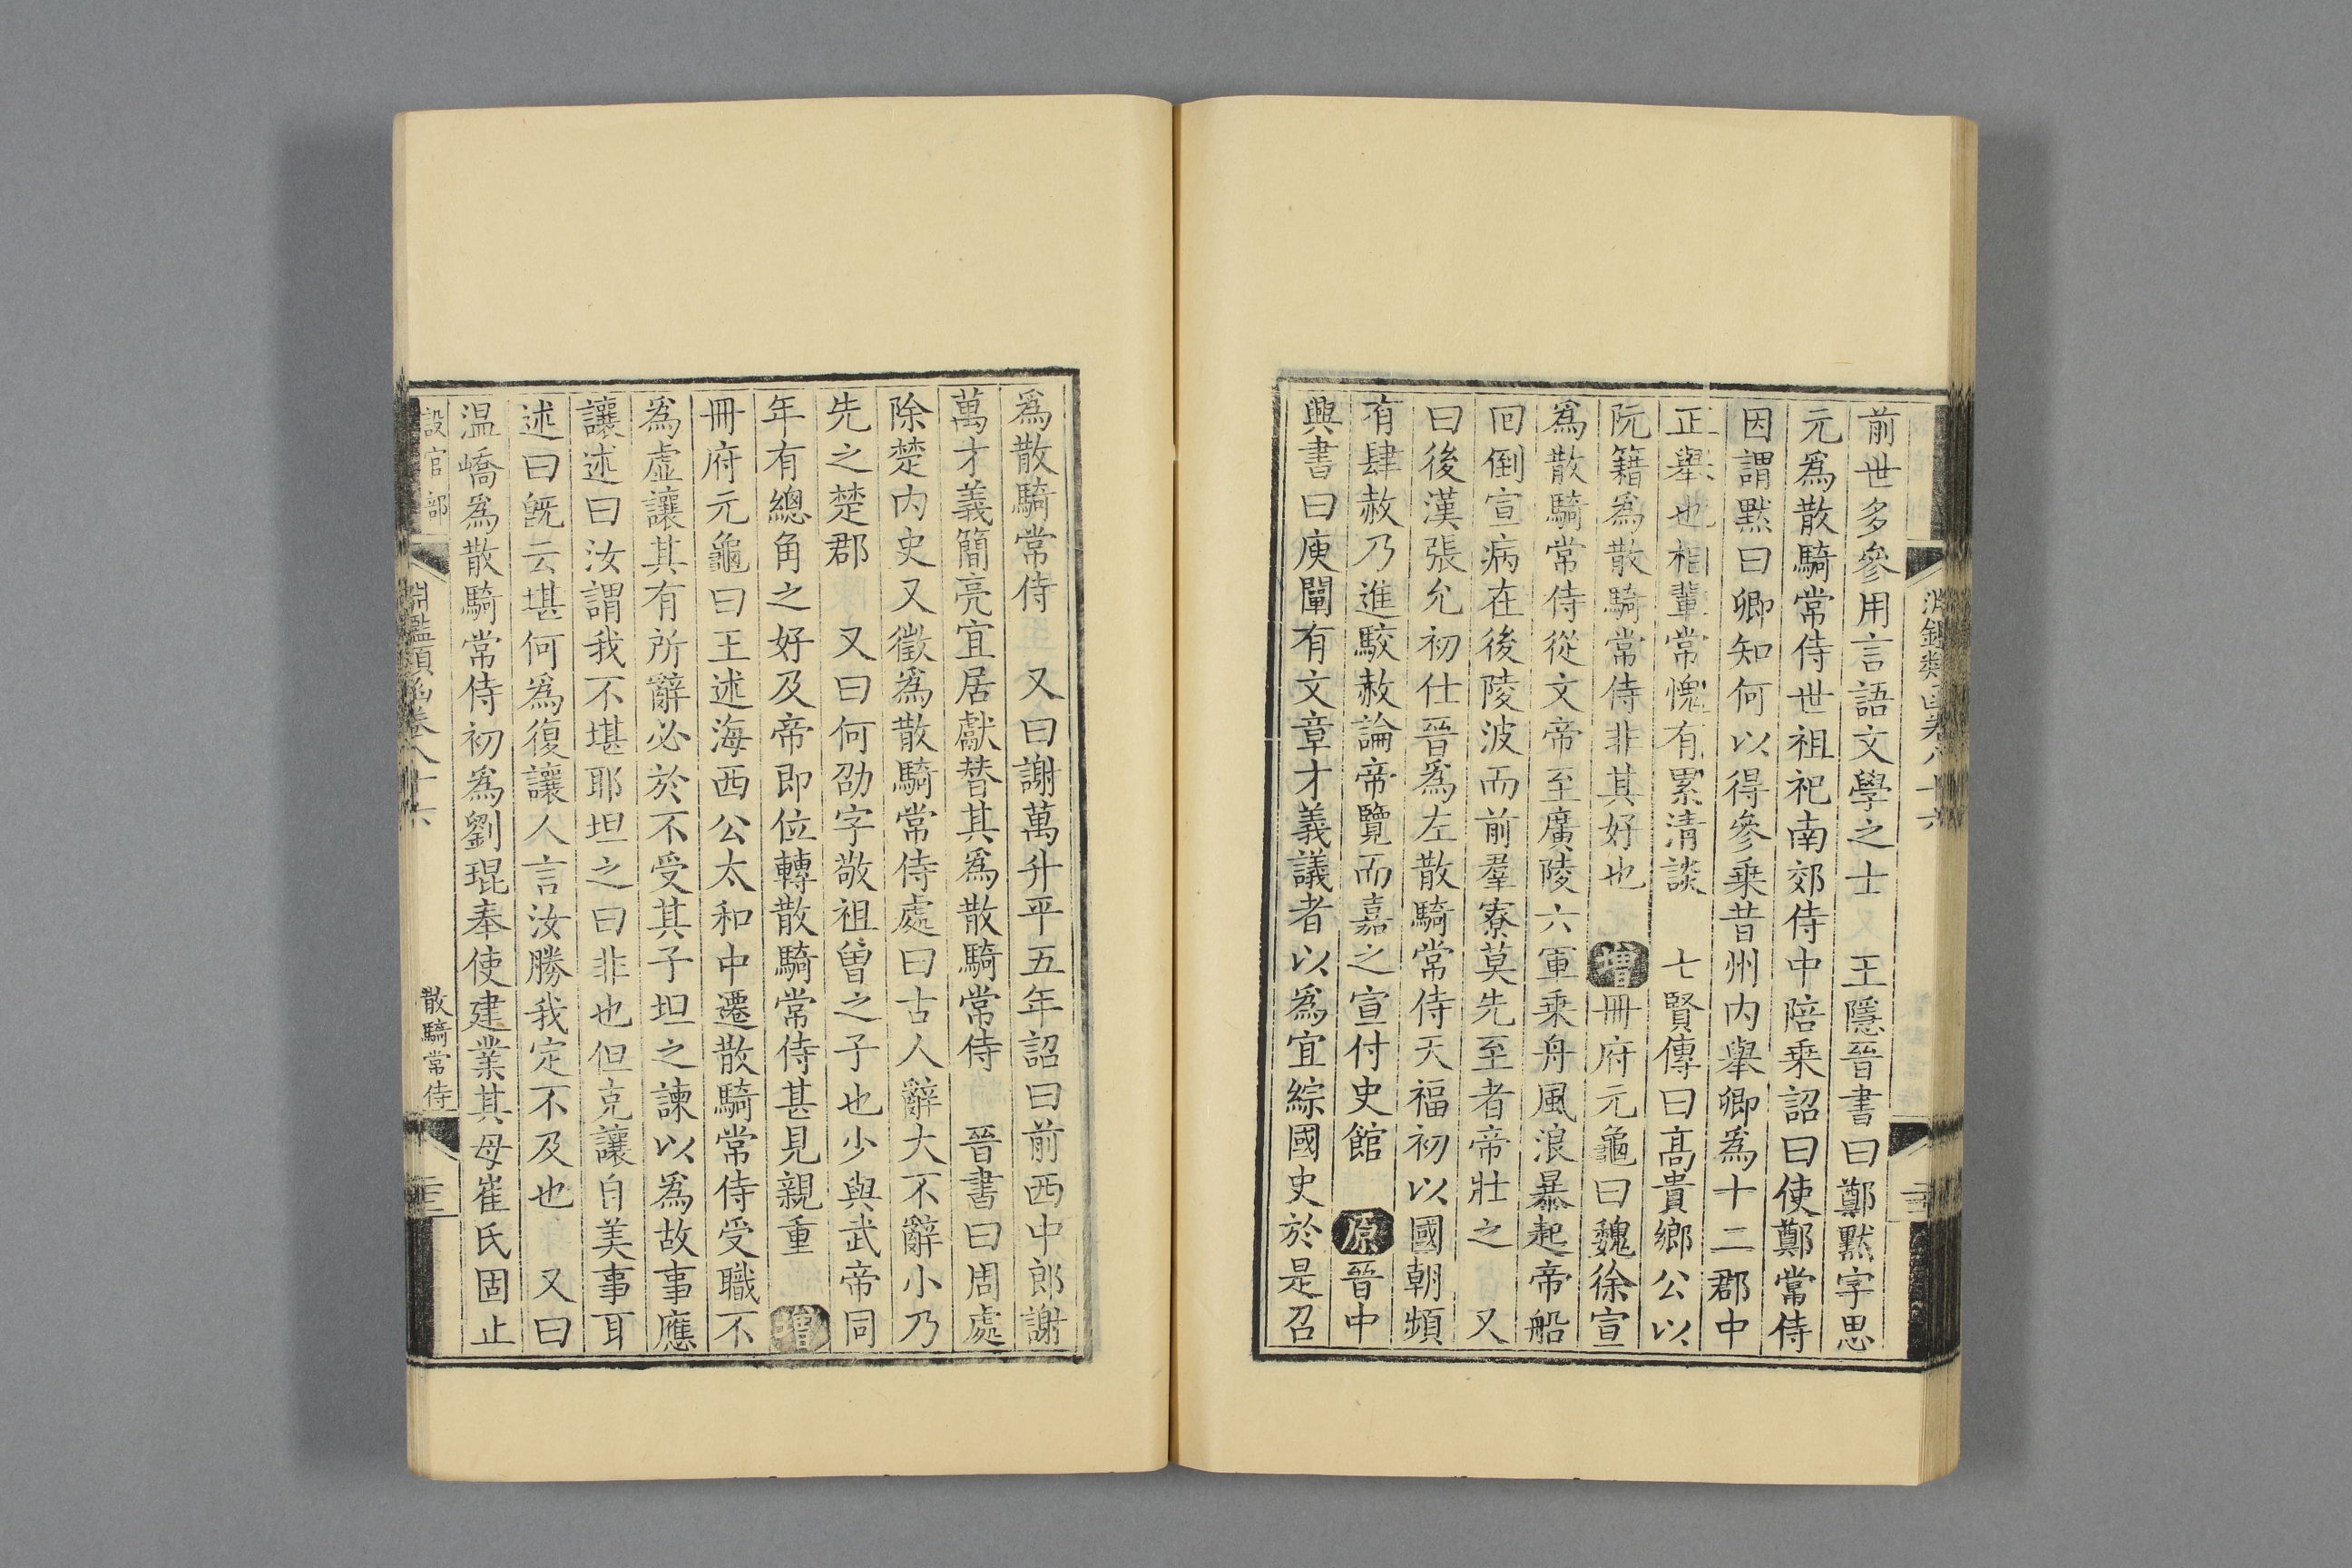 前世多參用言語文學之士 王隱晉書曰鄭默字思
元爲散騎常侍世祖祀南郊侍中陪乘詔曰使鄭常侍
因謂默曰卿知何以得參乗昔州内舉卿爲十二郡中
正舉也相輩常愧有累清談 七賢傳曰髙貴鄉公以
阮籍爲散騎常侍非其好也 增冊府元龜曰魏徐宣
爲散騎常侍從文帝至廣陵六軍乗舟風浪暴起帝船
回倒宣病在後陵波而前羣寮莫先至者帝壯之 又
曰後漢張允初仕晉爲左散騎常侍天福初以國朝頻
有肆赦乃進駮赦論帝覽而嘉之宣付史館 原晉中
興書曰庾闡有文章才義議者以爲宜綜國史於是召
爲散騎常侍 又曰謝萬升平五年詔曰前西中郎謝
萬才義簡亮宜居獻替其爲散騎常侍 晉書曰周處
除楚内史又徵爲散騎常侍處曰古人辭大不辭小乃
先之楚郡 又曰何劭字敬祖曽之子也少與武帝同
年有總角之好及帝即位轉散騎常侍甚見親重 增
冊府元龜曰王述海西公太和中遷散騎常侍受職不
爲虛讓其有所辭必於不受其子坦之諫以爲故事應
讓述曰汝謂我不堪耶坦之曰非也但克讓自美事耳
述曰旣云堪何爲復讓人言汝勝我定不及也 又曰
温嶠爲散騎常侍初爲劉琨奉使建業其母崔氏固止
設官部
淵鑑類函卷八十六
散騎常侍